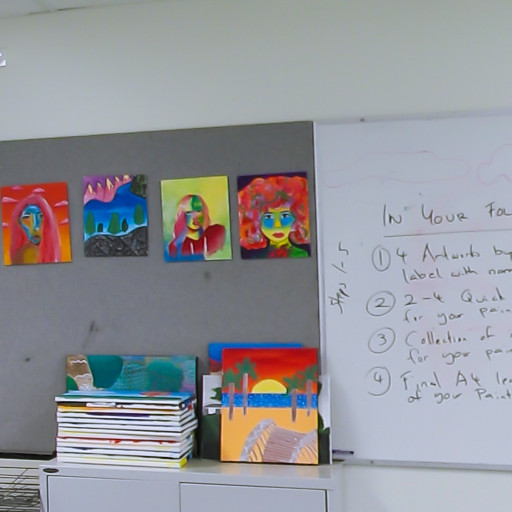 IN YOUR FO
① 4 Artworks by
label with nam
② 2-4 Quick
for your pain
③ Collection of
for your pai
④ Final A4 lea
of your Paint